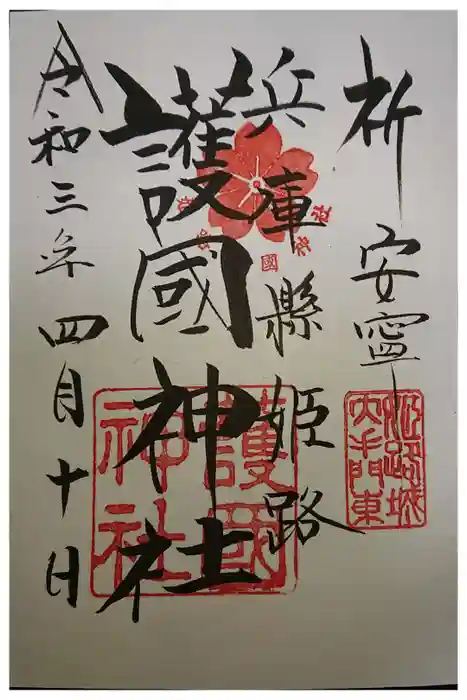 祈安寧
兵庫縣姫路
護國神社
令和三年四月十日
姫路城
大手門東
護國
神社